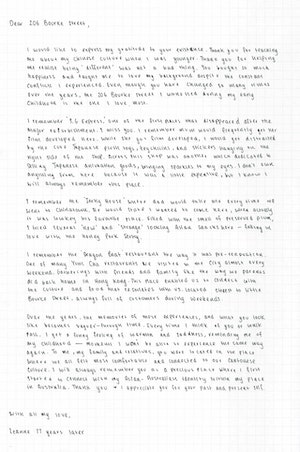 Dear 206 Bourke Street,
I would like to express my gratitude to your existence. Thank you for teaching
me about my Chinese culture when I was younger. Thank you for helping
me realise being 'different' was not a bad thing. You brought so much
happiness and taught me to love my background despite the constant
conflict I experienced. Even though you have changed so many times
over the years, the 206 Bourke Street I witnessed during my early
childhood is the one I love most.
I remember T.L Express, one of the first places that disappeared after the
major refurbishment. I miss you. I remember mum would frequently get her
film developed here. While she got film developed, I would get distracted
by the cute Japanese plush toys, keychains, and stickers hanging on the
right side of the shop. Across this shop was another which dedicated to
selling Japanese animation goods, bringing sparkles to my eyes. I don't own
anything from here because it was a little expensive, but I know I
will always remember this place.
I remember the 'Lucky House' sister and would take me every time we
went to Chinatown. We would have I wanted to come here,
it was looking its favourite place. Filled with the smell of preserved plum,
I loved several 'new' and 'strange' looking Asian snacks here - falling in
love with the Honey Pork Jerky.
I remember the Dragon Boat restaurant the way it was pre-renovation.
One of many Yum Cha restaurants we visited in the city almost every
weekend. Gatherings with friends and family like the way we
did back home in Hong Kong. This place enabled us to connect with
the culture and food that reconnects with us, located deeper in 206
Bourke Street, always full of customers during weekends.
Over the years, the memories of these experiences, and what you look
like becomes vaguer through time. Every time I think of you or walk
past, I get a funny feeling of warmth and sadness, reminding me of
my childhood - moments I won't be able to experience the same way
again. To me, my family and relatives, you were located in the place
where we all felt most comfortable and connected to our Cantonese
culture. I will always remember you as a precious place where I first
started to connect with my Asian-Australian identity within my place
in Australia. Thank you + I appreciate you for your past and present self.
With all my love,
Jeanne 17 years later